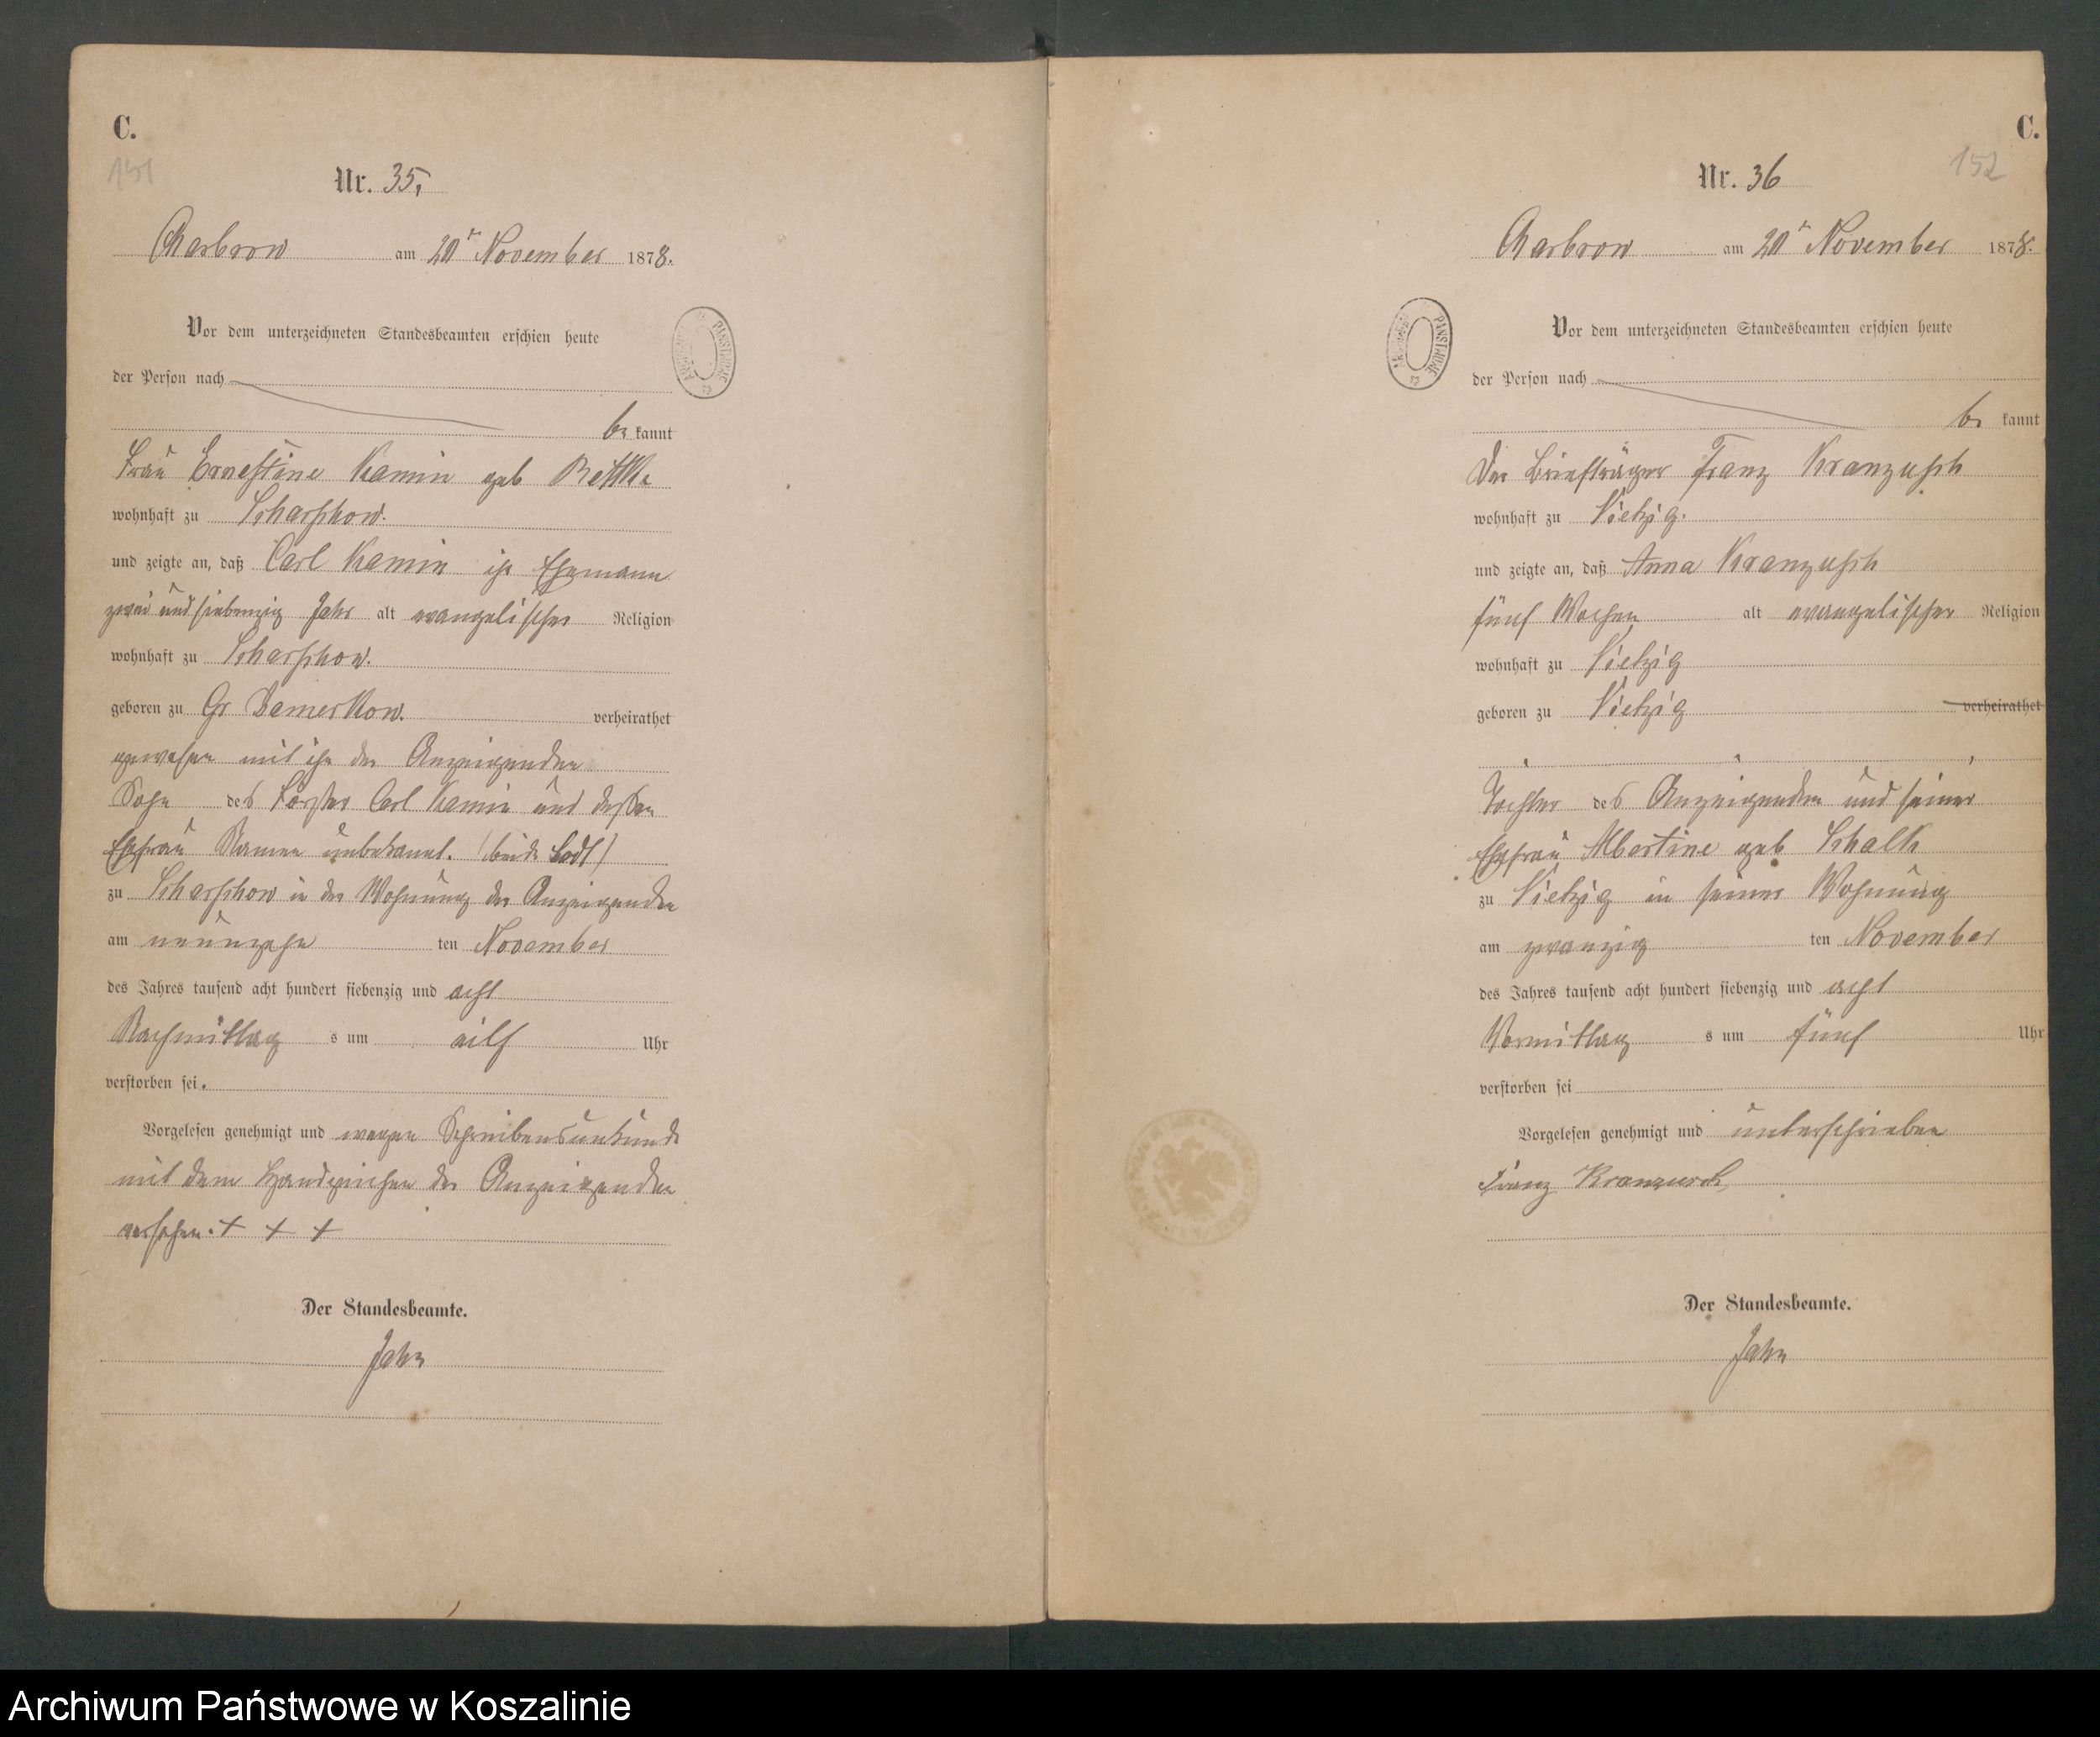 C.
151
Nr. 35.
Charbrow am 20n November 1878.
Vor dem unterzeichneten Standesbeamten erschien heute
der Person nach
be kannt
Frau Ernestine Kamin geb Bettke
wohnhaft zu Scharschow.
und zeigte an, daß Carl Kamin ihr Ehemann
zwei und siebenzig Jahr alt evangelischer Religion
wohnhaft zu Scharschow.
geboren zu Gr Damerkow. verheirathet
gewesen mit ihr der Anzeigenden
Sohn des Förster Carl Kamin und dessen
Ehefrau Namen unbekannt. (beide todt)
zu Scharschow in der Wohnung der Anzeigenden
am neunzehn ten November
des Jahres tausend acht hundert siebenzig und acht
Nachmittag s um eilf Uhr
verstorben sei.
Vorgelesen genehmigt und wegen Schreibensunkunde
mit dem Handzeichen der Anzeigenden
versehen. + + +
Der Standesbeamte.
Jahn
C.
152
Nr. 36
Charbrow am 20n November 1878.
Vor dem unterzeichneten Standesbeamten erschien heute
der Person nach
be kannt
Der Briefträger Franz Kranzusch
wohnhaft zu Vietzig.
und zeigte an, daß Anna Kranzusch
fünf Wochen alt evangelischer Religion
wohnhaft zu Vietzig
geboren zu Vietzig verheirathet
Tochter des Anzeigenden und seiner
Ehefrau Albertine geb Schalk
zu Vietzig in seiner Wohnung
am zwanzig ten November
des Jahres tausend acht hundert siebenzig und acht
Vormittag s um fünf Uhr
verstorben sei
Vorgelesen genehmigt und unterschrieben
Franz Kranzusch
Der Standesbeamte.
Jahn
Archiwum Państwowe w Koszalinie